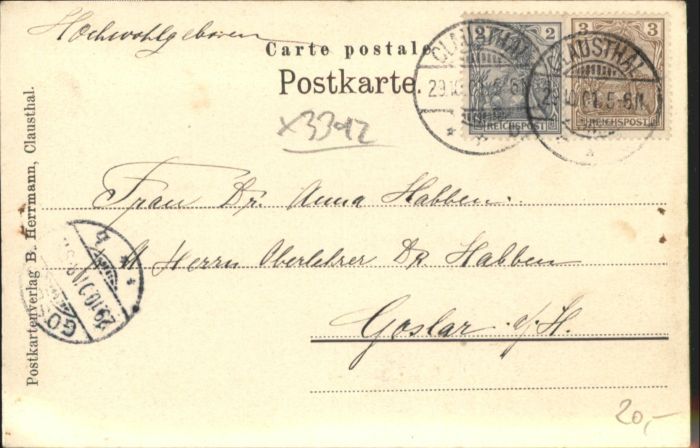 Hochwohlgeboren
Carte postale
Postkarte.
2 2
REICHSPOST
3 3
REICHSPOST
CLAUSTHAL
CLAUSTHAL
29.10.01. 5-6N.
x33-12
Frau Dr. Anna Habben.
Herrn Oberlehrer Dr. Habben
Goslar a/H.
GOS
29.10.01
Postkartenverlag B. Herrmann, Clausthal.
20,-